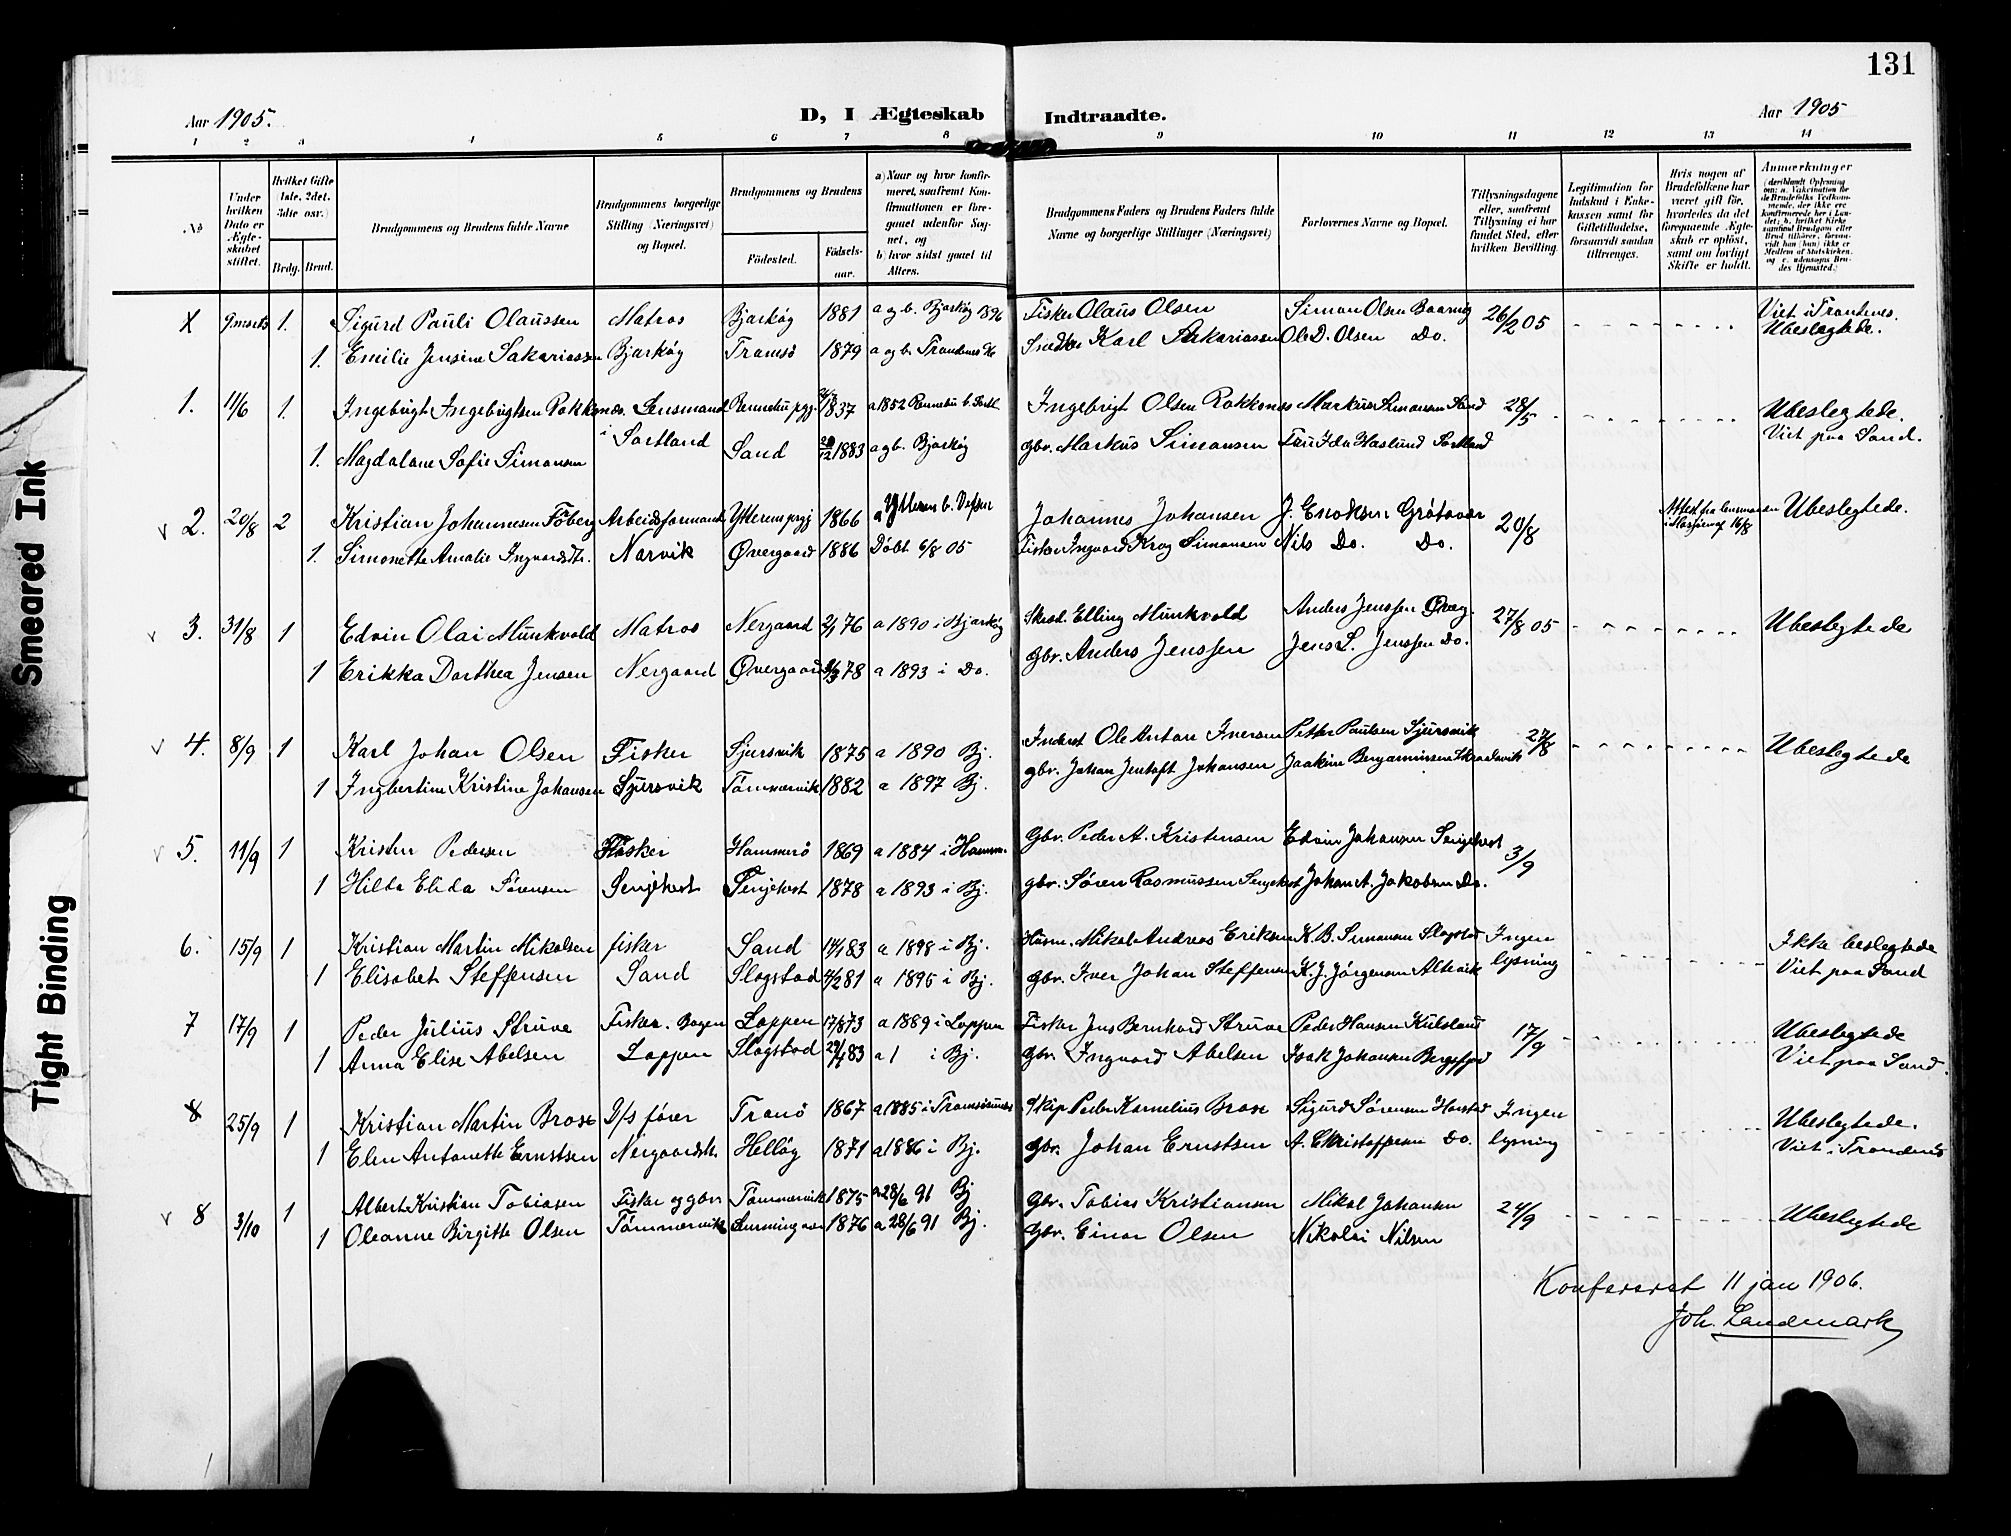 131
Aar 1905.
D, I Ægteskab Indtraadte.
Aar 1905
1 2 3 4 5 6 7 8 9 10 11 12 13 14
No
Under hvilken Dato er Ægteskabet stiftet.
Hvilket Gifte (1ste, 2det, 3die osv.)
Brdg. Brud.
Brudgommens og Brudens fulde Navne
Brudgommens borgerlige Stilling (Næringsvei) og Bopæl.
Brudgommens og Brudens
Fødested.
Fødselsaar.
a) Naar og hvor konfirmeret, saafremt Konfirmationen er foregaaet udenfor Sognet, og
b) hvor sidst gaaet til Alters.
Brudgommens Faders og Brudens Faders fulde Navne og borgerlige Stillinger (Næringsvei)
Forlovernes Navne og Bopæl.
Tillysningsdagene eller, saafremt Tillysning ei har fundet Sted, efter hvilken Bevilling.
Legitimation for Indskud i Enkekassen samt for Giftetilladelse, forsaavidt saadan tiltrænges.
Hvis nogen af Brudefolkene har været gift før, hvorledes da det foregaaende Ægteskab er opløst, samt om lovligt Skifte er holdt.
Anmærkninger
X 9 marts 1. Sigurd Pauli Olaussen Matros Bjarkøy 1881 a og b. Bjarkøy 1896 Fisker Olaus Olsen Simon Olsen 26/2 05 Viet i Trondenes. Ubeslegtede.
1. Emilie Jensine Sakariassen Bjarkøy Tromsø 1879 a og b. Trondenes Karl Sakariassen Ole D. Olsen Do.
1. 11/6 1. Ingebrigt Ingebrigtsen Rokkones. Lensmand Rennebu pgj. 1837 a 1852 Rennebu b. Sortl. Ingebrigt Olsen Rokkones Markus Simonsen Sand 28/5 Ubeslegtede.
i Sortland Viet paa Sand.
1. Magdalane Sofie Simonsen Sand 20/12 1883 a og b. Bjarkøy gbr. Markus Simonsen Fru Ida Haslund Sortland
2. 20/8 2 Kristian Johannesen Førberg Arbeidsformand Ytterens prgj 1866 a Ytteren b. Vefsen Johannes Johansen J. Enoksen Grøtavær 20/8 Attest fra lensmanden i Mosjøen af 16/8 Ubeslegtede.
1. Simonette Amalie Ingvardsdtr. Narvik Øvergaard 1886 Døbt 6/8 05 Fisker Ingvard Krog Simonsen Nils Do. Do.
3. 31/8 1 Edvin Olai Munkvold Matros Nergaard 2/1 76 a 1890 i Bjarkøy Elling Munkvold Anders Jenssen Øverg. 27/8 05 Ubeslegtede
1 Erikka Dorthea Jensen Nergaard Øvergaard 78 a 1893 i Do. Gbr. Anders Jenssen Jens L. Jenssen Do.
4. 8/9 1 Karl Johan Olsen Fisker Sjursvik 1875 a 1890 Bj. Inderst Ole Anton Iversen Petter Paulsen Sjursvik 27/8 Ubeslegtede
1 Ingbertine Kristine Johansen Sjursvik Tømmervik 1882 a 1897 Bj. gbr. Johan Jentoft Johansen Joakim Benjaminsen Skrædsvik
5. 11/9 1 Krister Pedersen Fisker Hammerø 1869 a 1884 i Hamm. Gbr. Peder A. Kristensen Edvin Johansen Senjehest 3/9
1 Hilda Elida Sørensen Senjehest Senjehest 1878 a 1893 i Bj. gbr. Søren Rasmussen Senjehest Johan A. Jakobsen Do.
6. 15/9 1 Kristian Martin Mikalsen fisker Sand 83 a 1898 i Bj. Husm. Mikal Andreas Eriksen K. B. Simonsen Slogstad Ingen Ikke beslegtede
1 Elisabet Steffensen Sand Slogstad 81 a 1895 i Bj. gbr. Iver Johan Steffensen K. J. Jørgensen Altevik lysning Viet paa Sand
7 17/9 1 Peder Julius Struve Fisker. Bogen Loppen 17/8 73 a 1889 i Loppen Fisker Jens Bernhard Struve Peder Hansen Kulslaus 17/9 Ubeslegtede
1 Anna Elise Abelsen Loppen Slogstad 83 a 1 i Bj. Gbr. Ingvard Abelsen Isak Johansen Bergsfjord Viet paa Sand.
8 25/9 1 Kristian Martin Brose D/s fører Tranø 1867 a 1885 i Tromsøsund Skip. Peder Kornelius Brose Sigurd Sørensen Harstad Ingen Ubeslegtede.
1 Elen Antonette Ernstsen Nergaardsh. Helløy 1871 a 1886 i Bj. gbr. Johan Ernstsen A. Christoffersen Do. lysning Viet i Trondenes
8 3/10 1 Albert Kristian Tobiasen Fisker og gbr. Tømmervik 1875 a 28/6 91 Bj Gbr. Tobias Kristiansen Mikal Johansen 24/9 Ubeslegtede
1 Oleanne Birgitte Olsen Tømmervik 1876 a 28/6 91 Bj. Gbr. Einar Olsen Nikolai Nilsen
Konfereret 11 jan 1906.
Joh. Landmark
Smeared Ink
Tight Binding